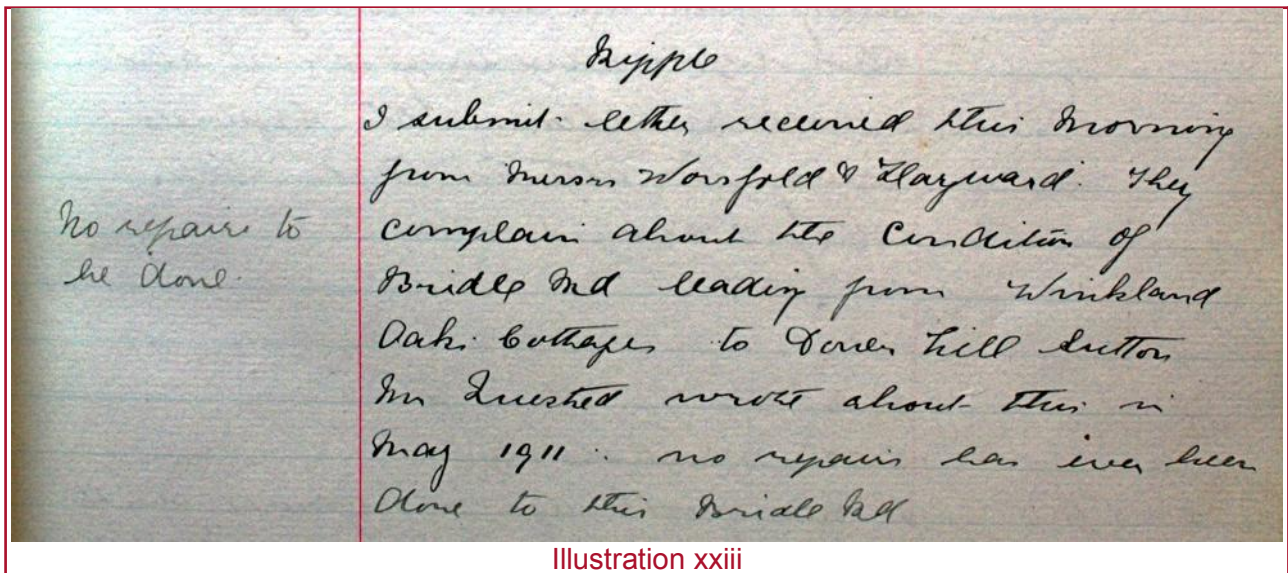 Ripple
I submit letter received this morning
from Messrs Worsfold & Hayward. They
complain about the Condition of
Bridle Rd leading from Winkland
Oaks Cottages to Dover Hill Sutton
Mr Quested wrote about this in
May 1911 .. no repairs has ever been
done to this Bridle Rd
No repairs to
be done.
Illustration xxiii